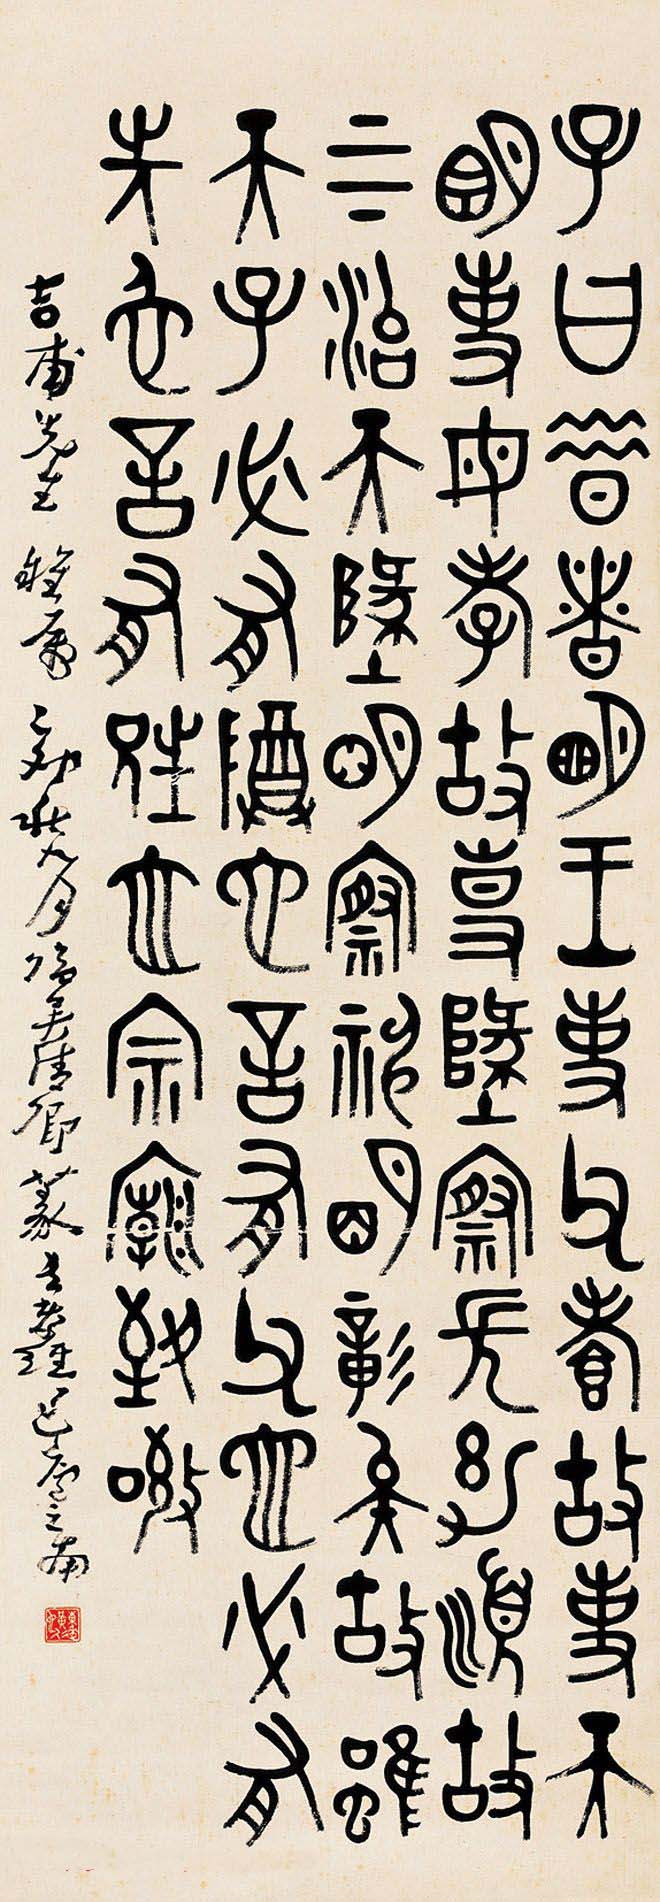 子曰昔者明王事父孝故事天
明事母孝故事地察長幼順故
上下治天地明察神明彰矣故雖
天子必有尊也言有父也必有
先也言有兄也宗廟致敬
吉甫先生雅屬 秋九月臨吳清卿篆